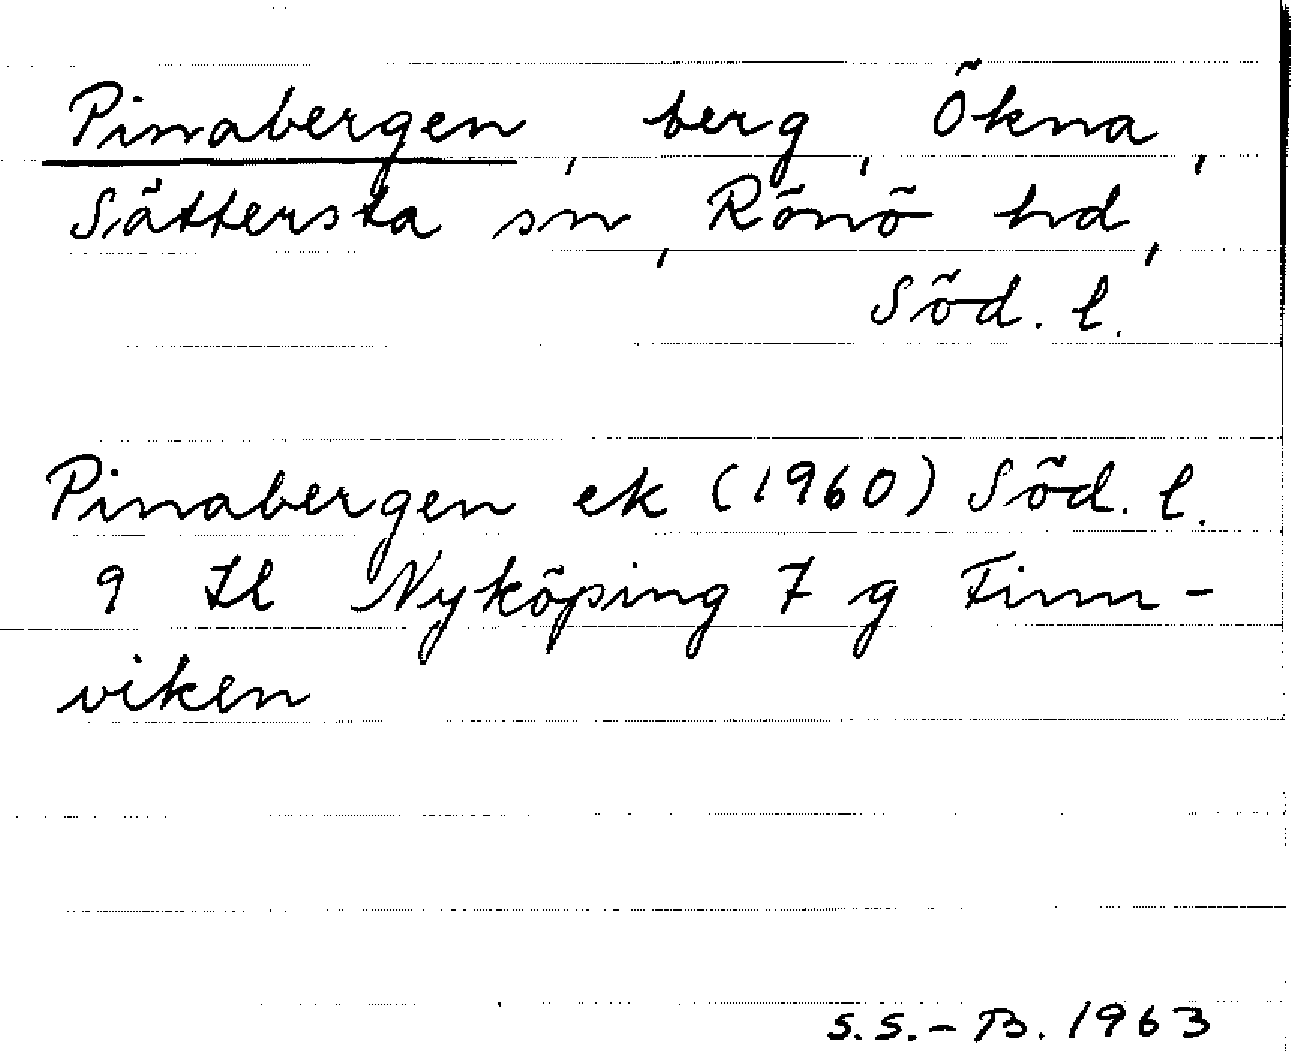 Pinabergen, berg, Ökna,
Sättersta sn, Rönö hd,
Söd. l.
Pinabergen ek (1960) Söd. l.
9 Il Nyköping 7 g Finn-
viken
S.S.-B. 1963